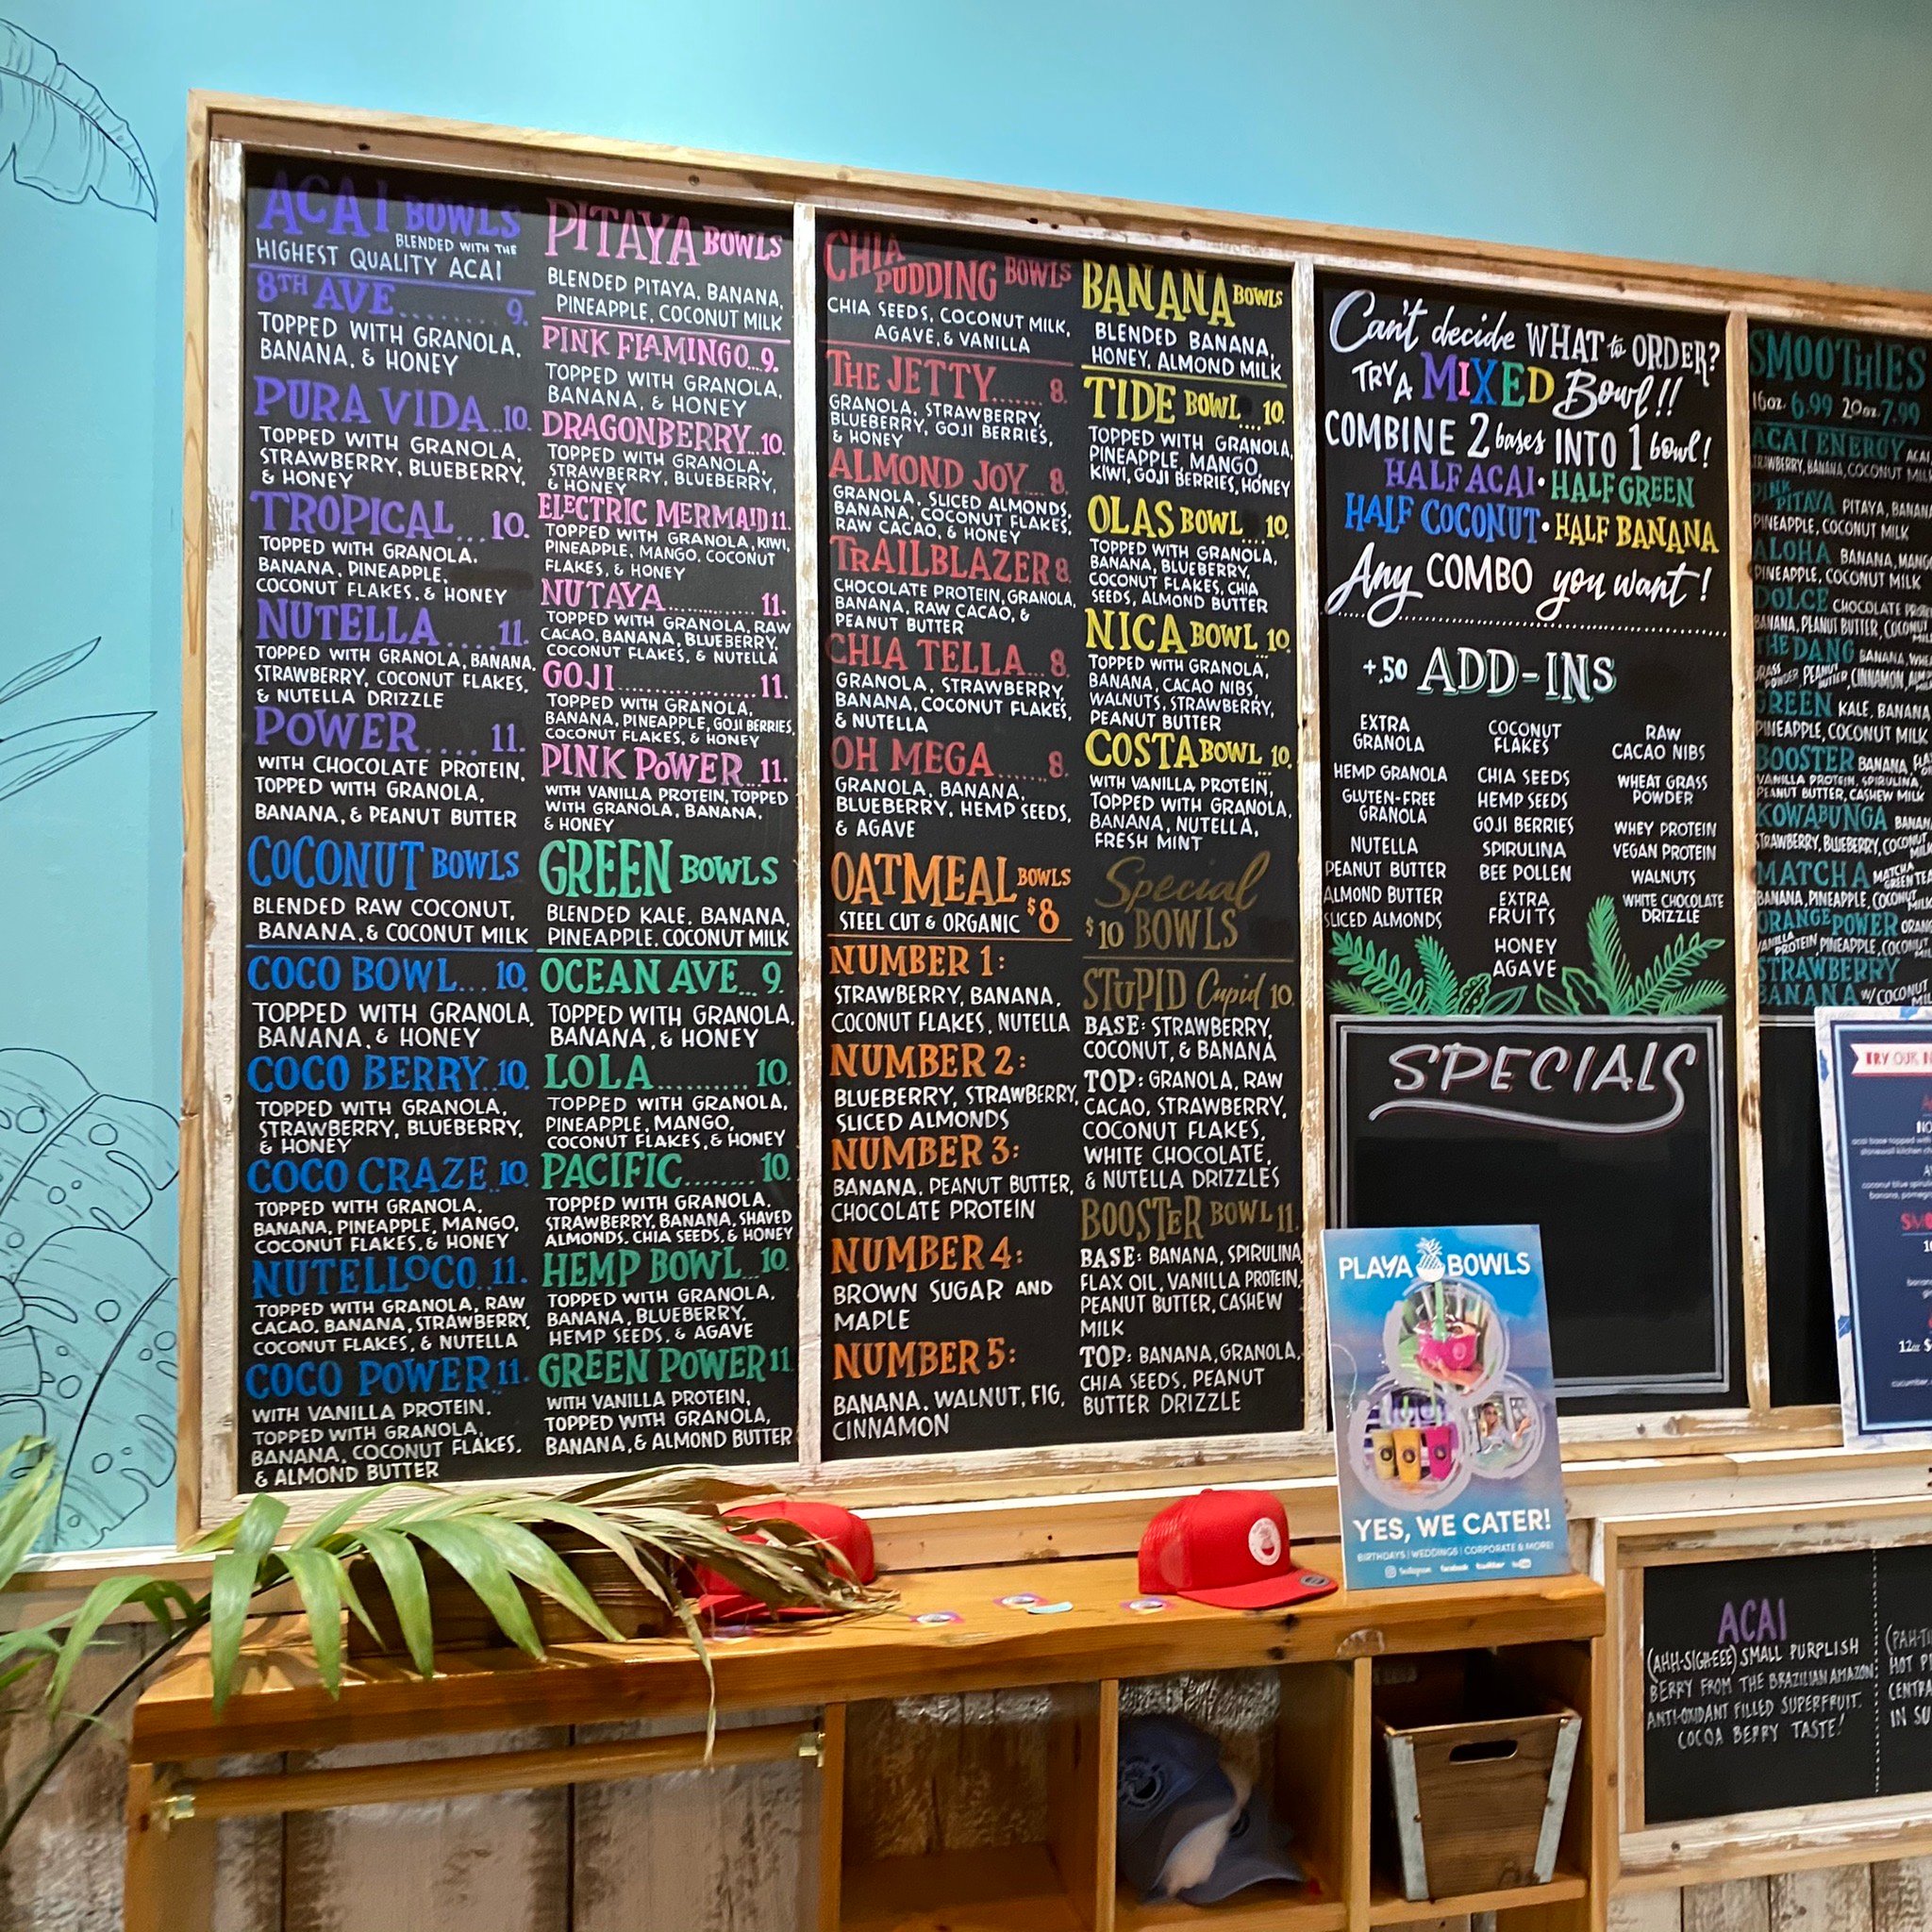 ACAI BOWLS
BLENDED WITH THE
HIGHEST QUALITY ACAI
8TH AVE........ 9.
TOPPED WITH GRANOLA,
BANANA, & HONEY
PURA VIDA..10.
TOPPED WITH GRANOLA,
STRAWBERRY, BLUEBERRY,
& HONEY
TROPICAL...10.
TOPPED WITH GRANOLA,
BANANA, PINEAPPLE,
COCONUT FLAKES, & HONEY
NUTELLA....11.
TOPPED WITH GRANOLA, BANANA,
STRAWBERRY, COCONUT FLAKES,
& NUTELLA DRIZZLE
POWER.... 11.
WITH CHOCOLATE PROTEIN,
TOPPED WITH GRANOLA,
BANANA, & PEANUT BUTTER
COCONUT BOWLS
BLENDED RAW COCONUT,
BANANA, & COCONUT MILK
COCO BOWL... 10.
TOPPED WITH GRANOLA,
BANANA, & HONEY
COCO BERRY..10.
TOPPED WITH GRANOLA,
STRAWBERRY, BLUEBERRY,
& HONEY
COCO CRAZE..10.
TOPPED WITH GRANOLA,
BANANA, PINEAPPLE, MANGO,
COCONUT FLAKES, & HONEY
NUTELLOCO..11.
TOPPED WITH GRANOLA, RAW
CACAO, BANANA, STRAWBERRY,
COCONUT FLAKES, & NUTELLA
COCO POWER..11.
WITH VANILLA PROTEIN,
TOPPED WITH GRANOLA,
BANANA, COCONUT FLAKES,
& ALMOND BUTTER
PITAYA BOWLS
BLENDED PITAYA, BANANA,
PINEAPPLE, COCONUT MILK
PINK FLAMINGO...9.
TOPPED WITH GRANOLA,
BANANA, & HONEY
DRAGONBERRY...10.
TOPPED WITH GRANOLA,
STRAWBERRY, BLUEBERRY,
& HONEY
ELECTRIC MERMAID 11.
TOPPED WITH GRANOLA, KIWI,
PINEAPPLE, MANGO, COCONUT
FLAKES, & HONEY
NUTAYA.............. 11.
TOPPED WITH GRANOLA, RAW
CACAO, BANANA, BLUEBERRY,
COCONUT FLAKES, & NUTELLA
GOJI.................. 11.
TOPPED WITH GRANOLA,
BANANA, PINEAPPLE, GOJI BERRIES,
COCONUT FLAKES, & HONEY
PINK POWER...11.
WITH VANILLA PROTEIN, TOPPED
WITH GRANOLA, BANANA,
& HONEY
GREEN BOWLS
BLENDED KALE, BANANA,
PINEAPPLE, COCONUT MILK
OCEAN AVE... 9.
TOPPED WITH GRANOLA,
BANANA, & HONEY
LOLA.......... 10.
TOPPED WITH GRANOLA,
PINEAPPLE, MANGO,
COCONUT FLAKES, & HONEY
PACIFIC........ 10.
TOPPED WITH GRANOLA,
STRAWBERRY, BANANA, SHAVED
ALMONDS, CHIA SEEDS, & HONEY
HEMP BOWL...10.
TOPPED WITH GRANOLA,
BANANA, BLUEBERRY,
HEMP SEEDS, & AGAVE
GREEN POWER 11.
WITH VANILLA PROTEIN,
TOPPED WITH GRANOLA,
BANANA, & ALMOND BUTTER
CHIA
PUDDING BOWLS
CHIA SEEDS, COCONUT MILK,
AGAVE, & VANILLA
THE JETTY....... 8.
GRANOLA, STRAWBERRY,
BLUEBERRY, GOJI BERRIES,
& HONEY
ALMOND JOY... 8.
GRANOLA, SLICED ALMONDS,
BANANA, COCONUT FLAKES,
RAW CACAO, & HONEY
TRAILBLAZER 8.
CHOCOLATE PROTEIN, GRANOLA,
BANANA, RAW CACAO, &
PEANUT BUTTER
CHIA TELLA... 8.
GRANOLA, STRAWBERRY,
BANANA, COCONUT FLAKES,
& NUTELLA
OH MEGA....... 8.
GRANOLA, BANANA,
BLUEBERRY, HEMP SEEDS,
& AGAVE
OATMEAL BOWLS
STEEL CUT & ORGANIC $8
NUMBER 1:
STRAWBERRY, BANANA,
COCONUT FLAKES, NUTELLA
NUMBER 2:
BLUEBERRY, STRAWBERRY,
SLICED ALMONDS
NUMBER 3:
BANANA, PEANUT BUTTER,
CHOCOLATE PROTEIN
NUMBER 4:
BROWN SUGAR AND
MAPLE
NUMBER 5:
BANANA, WALNUT, FIG,
CINNAMON
BANANA BOWLS
BLENDED BANANA,
HONEY, ALMOND MILK
TIDE BOWL....10.
TOPPED WITH GRANOLA,
PINEAPPLE, MANGO,
KIWI, GOJI BERRIES, HONEY
OLAS BOWL....10.
TOPPED WITH GRANOLA,
BANANA, BLUEBERRY,
COCONUT FLAKES, CHIA
SEEDS, ALMOND BUTTER
NICA BOWL..10.
TOPPED WITH GRANOLA,
BANANA, CACAO NIBS,
WALNUTS, STRAWBERRY,
PEANUT BUTTER
COSTA BOWL...10.
WITH VANILLA PROTEIN,
TOPPED WITH GRANOLA,
BANANA, NUTELLA,
FRESH MINT
Special
$10 BOWLS
STUPID Cupid 10.
BASE: STRAWBERRY,
COCONUT, & BANANA
TOP: GRANOLA, RAW
CACAO, STRAWBERRY,
COCONUT FLAKES,
WHITE CHOCOLATE,
& NUTELLA DRIZZLES
BOOSTER BOWL 11.
BASE: BANANA, SPIRULINA,
FLAX OIL, VANILLA PROTEIN,
PEANUT BUTTER, CASHEW
MILK
TOP: BANANA, GRANOLA,
CHIA SEEDS, PEANUT
BUTTER DRIZZLE
Can't decide WHAT to ORDER?
TRY A MIXED Bowl!!
COMBINE 2 bases INTO 1 bowl!
HALF ACAI • HALF GREEN
HALF COCONUT • HALF BANANA
Any COMBO you want!
+.50 ADD-INS
EXTRA
GRANOLA
HEMP GRANOLA
GLUTEN-FREE
GRANOLA
NUTELLA
PEANUT BUTTER
ALMOND BUTTER
SLICED ALMONDS
COCONUT
FLAKES
CHIA SEEDS
HEMP SEEDS
GOJI BERRIES
SPIRULINA
BEE POLLEN
EXTRA
FRUITS
HONEY
AGAVE
RAW
CACAO NIBS
WHEAT GRASS
POWDER
WHEY PROTEIN
VEGAN PROTEIN
WALNUTS
WHITE CHOCOLATE
DRIZZLE
SPECIALS
SMOOTHIES
16oz. 6.99 20oz. 7.99
ACAI ENERGY ACAI,
STRAWBERRY, BANANA, COCONUT MILK
PINK
PITAYA PITAYA, BANANA,
PINEAPPLE, COCONUT MILK
ALOHA BANANA, MANGO
PINEAPPLE, COCONUT MILK
DOLCE CHOCOLATE
BANANA, PEANUT BUTTER, COCONUT
THE DANG BANANA,
GRASS POWDER, PEANUT BUTTER, CINNAMON,
GREEN KALE, BANANA,
PINEAPPLE, COCONUT MILK
BOOSTER BANANA,
VANILLA PROTEIN, SPIRULINA,
PEANUT BUTTER, CASHEW MILK
KOWABUNGA
STRAWBERRY, BLUEBERRY, COCONUT MILK
MATCHA MATCHA GREEN TEA
BANANA, PINEAPPLE, COCONUT MILK
ORANGE POWER
VANILLA PROTEIN, PINEAPPLE, COCONUT
STRAWBERRY
BANANA W/ COCONUT
TRY OUR
PLAYA BOWLS
YES, WE CATER!
BIRTHDAYS | WEDDINGS | CORPORATE & MORE!
Instagram facebook twitter
ACAI
(AHH-SIGH-EEE) SMALL PURPLISH
BERRY FROM THE BRAZILIAN AMAZON.
ANTI-OXIDANT FILLED SUPERFRUIT.
COCOA BERRY TASTE!
HOT
IN